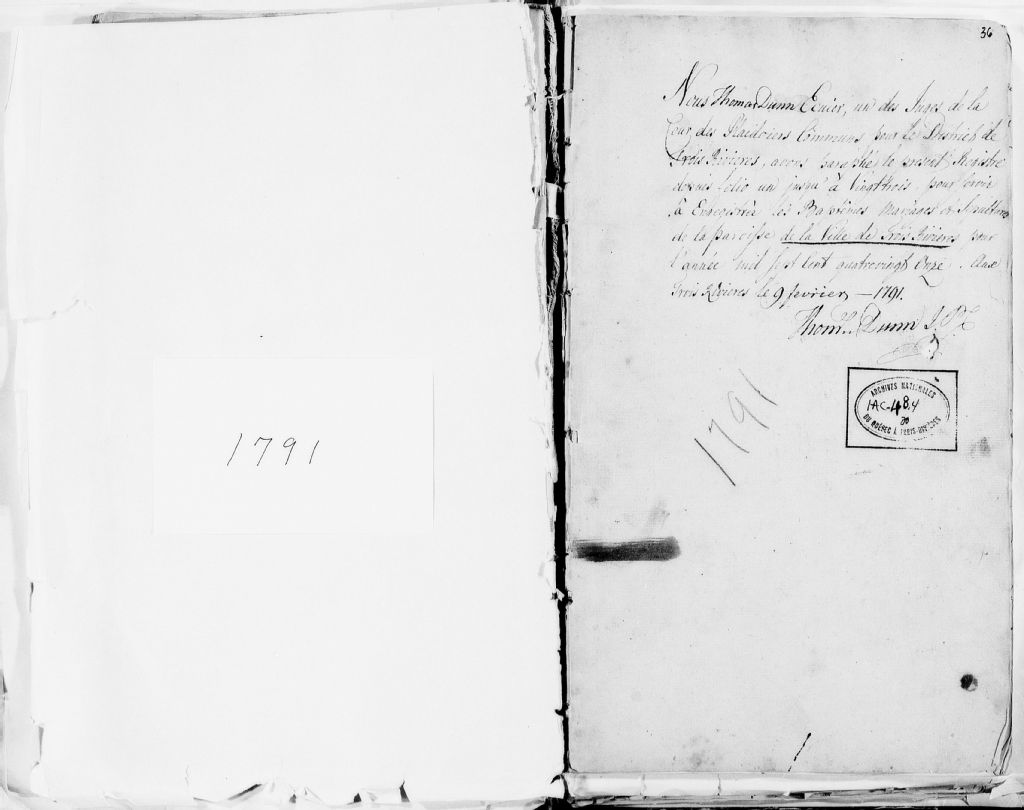 1791
36
Nous Thomas Dunn Ecuier, un des Juges de la
Cour des Plaidoiers Communs pour le District de
Trois Rivieres, avons paraphé le present Registre
depuis folio un jusqu'à Vingt trois pour servir
à Enregistrer les Baptêmes Mariages et Sepultures
de la paroisse de la Ville de Trois Rivieres pour
l'année mil sept Cent quatrevingt Onze. Aux
Trois Rivieres le 9 fevrier — 1791.
Thom.s Dunn J.P.C
ARCHIVES NATIONALES
IAC-484
DU QUÉBEC À TROIS-RIVIÈRES
1791